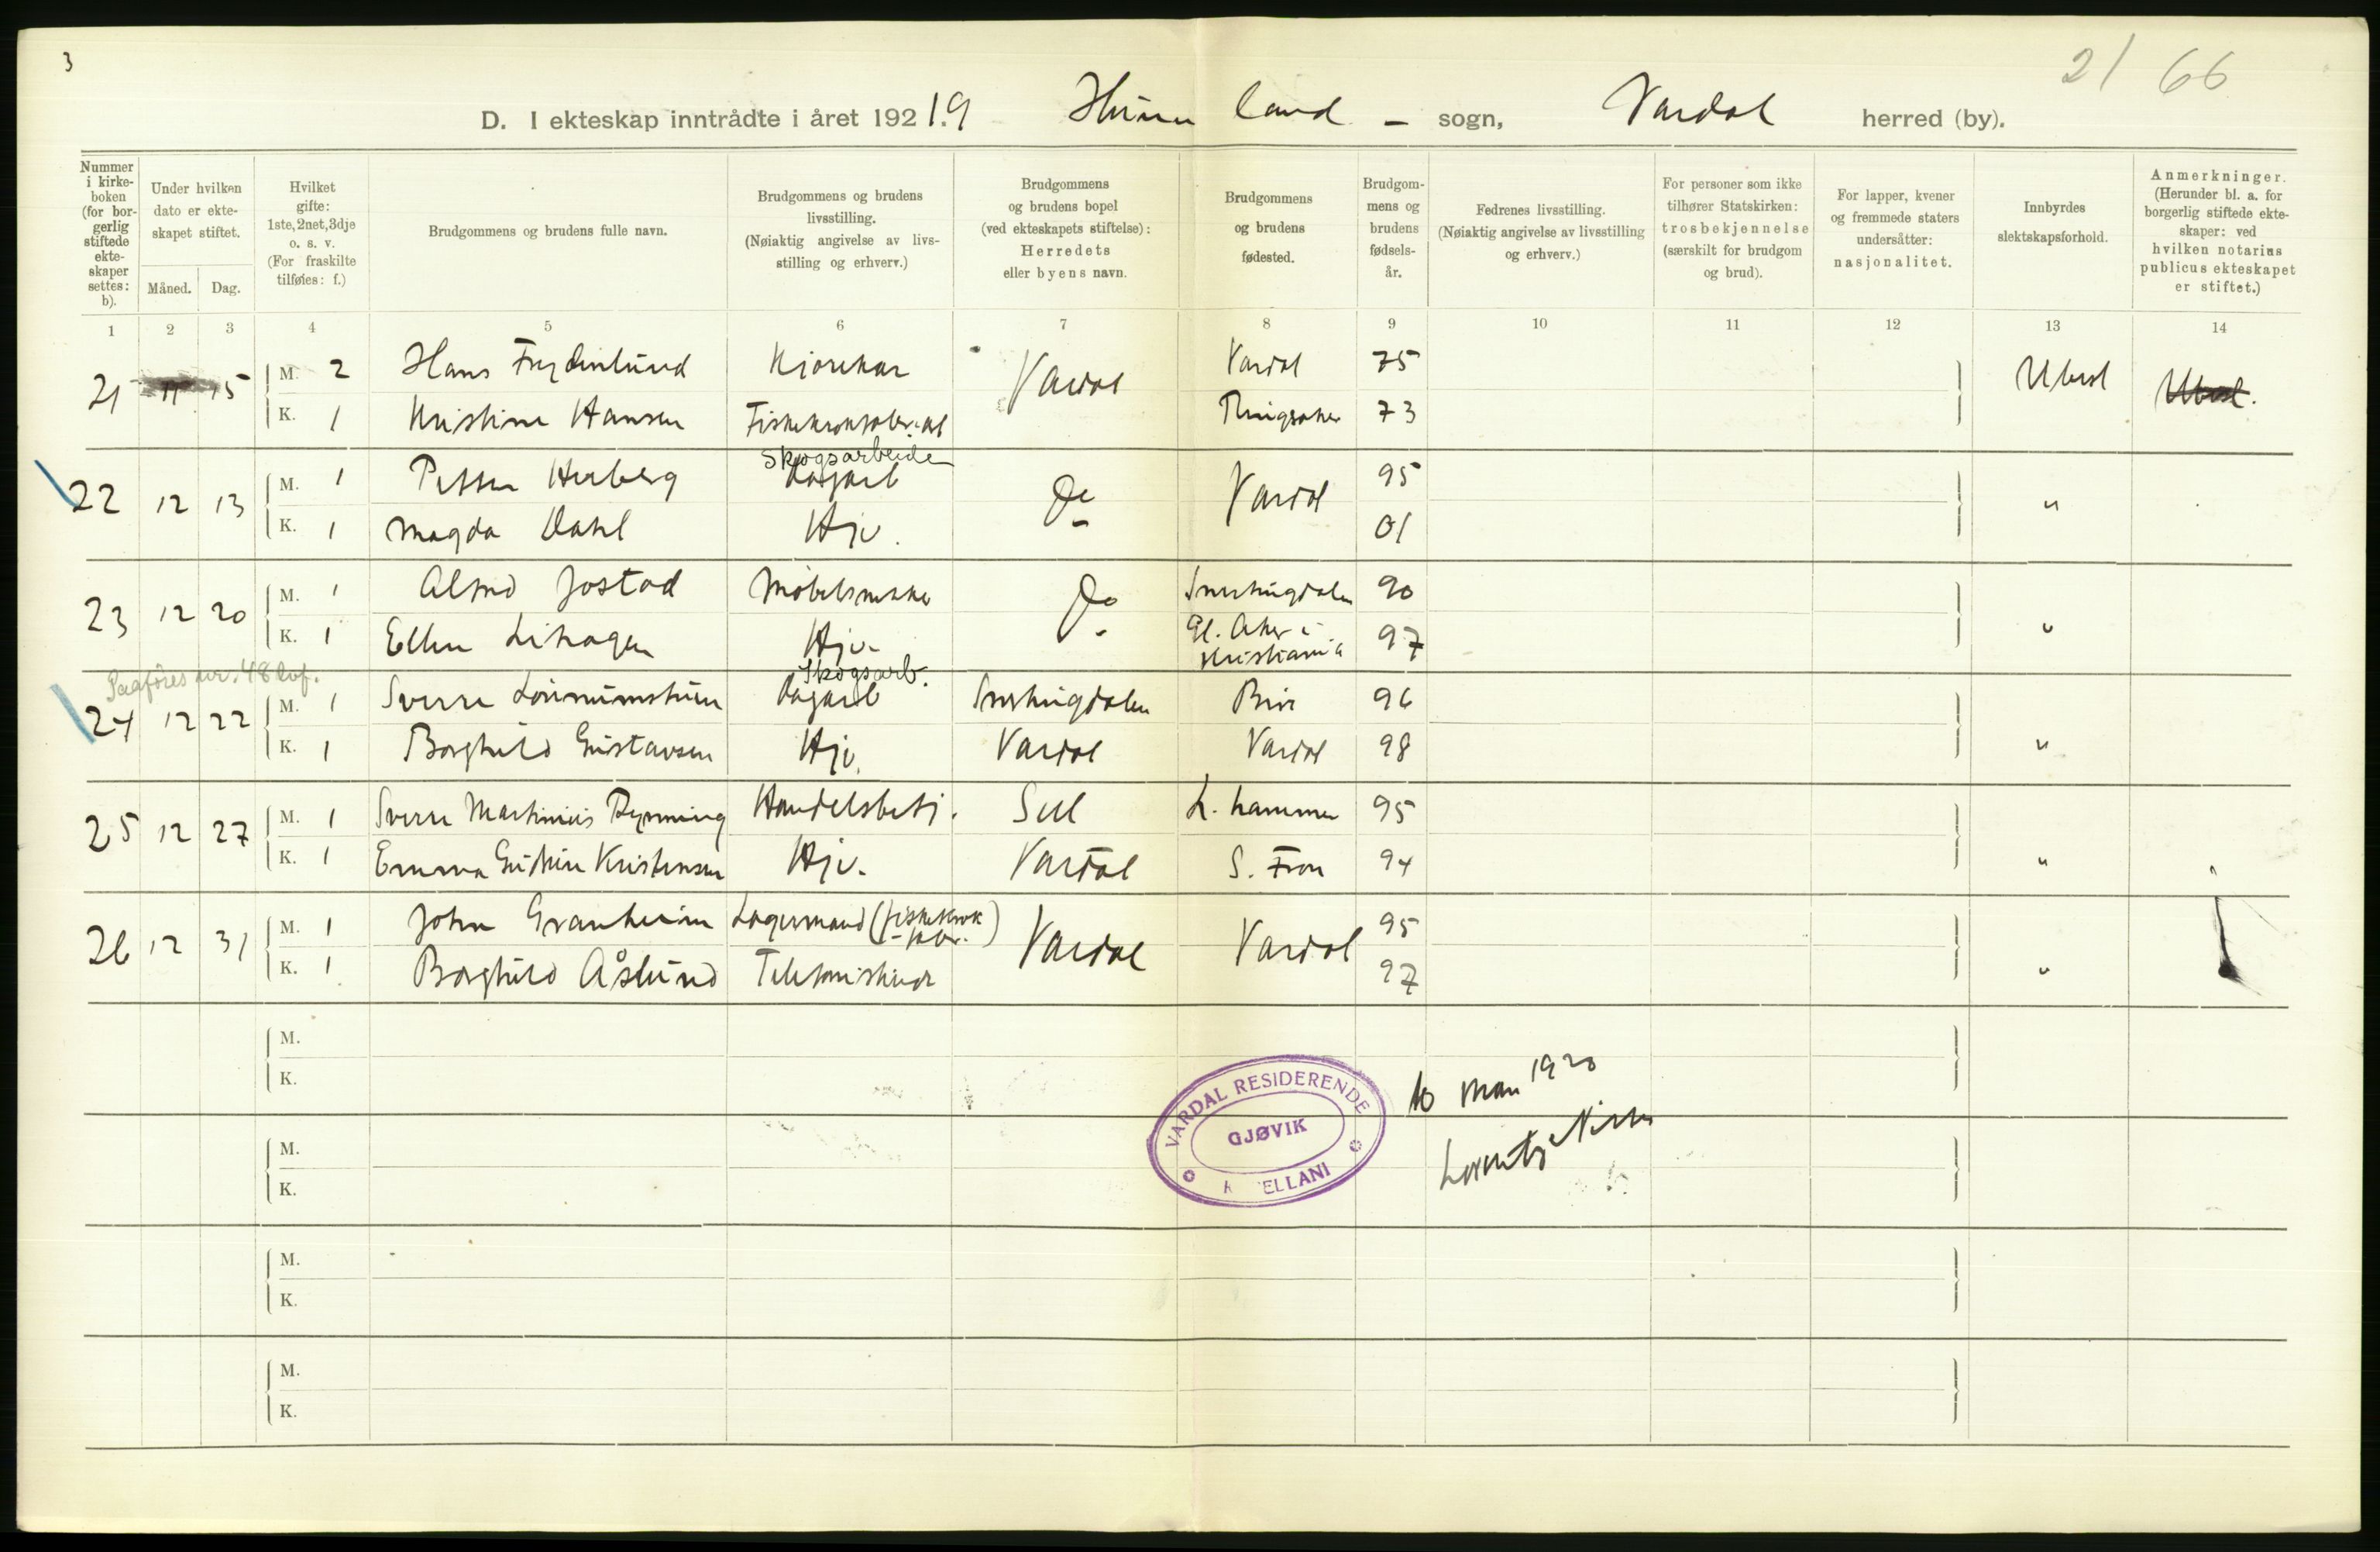 3
21 66
D. I ekteskap inntrådte i året 192 1.9 Hunn land - sogn, Vardal herred (by).
Nummer i kirke-boken (for bor-gerlig stiftede ekte-skaper settes: b).
Under hvilken dato er ekte-skapet stiftet.
Måned. Dag.
Hvilket gifte: 1ste, 2net, 3dje o. s. v. (For fraskilte tilføies: f.)
Brudgommens og brudens fulle navn.
Brudgommens og brudens livsstilling. (Nøiaktig angivelse av livs-stilling og erhverv.)
Brudgommens og brudens bopel (ved ekteskapets stiftelse): Herredets eller byens navn.
Brudgommens og brudens fødested.
Brudgom-mens og brudens fødsels-år.
Fedrenes livsstilling. (Nøiaktig angivelse av livsstilling og erhverv.)
For personer som ikke tilhører Statskirken: trosbekjennelse (særskilt for brudgom og brud).
For lapper, kvener og fremmede staters undersåtter: nasjonalitet.
Innbyrdes slektskapsforhold.
Anmerkninger. (Herunder bl. a. for borgerlig stiftede ekte-skaper: ved hvilken notarius publicus ekteskapet er stiftet.)
1 2 3 4 5 6 7 8 9 10 11 12 13 14
21 11 15 M. 2 Hans Frydenlund Kjørekar Vardal Vardal 75 Ubesl Ubesl.
K. 1 Kristine Hansen Ringsaker 73
Skogsarbeider
22 12 13 M. 1 Petter Herberg Dagarb Do Vardal 95 "
K. 1 Magda Dahl Hjv. 01
23 12 20 M. 1 Alfred Jostad Møbelsnekker Do Snertingdalen 90 "
K. 1 Ellen Lihagen Hjv. Gl. Aker i Kristiania 97
nr. 48 Skogsarb.
24 12 22 M. 1 Sverre Dagarb Snertingdalen Biri 96
K. 1 Borghild Gustavsen Hjv. Vardal Vardal 98 "
25 12 27 M. 1 Sverre Martinius Rynning Handelsbetj. Sel L. hammer 95
K. 1 Emma Gudrun Kristensen Hjv. Vardal S. Fron 94 "
26 12 31 M. 1 John Granheim Lagermand (fiskekrok-fabr.) Vardal Vardal 95
K. 1 Borghild Åslund Telefonistinde 97 "
M.
K.
VARDAL RESIDERENDE K ELLANI
GJØVIK
10 Mars 1920
M.
K.
Lorentz Nissen
M.
K.
M.
K.